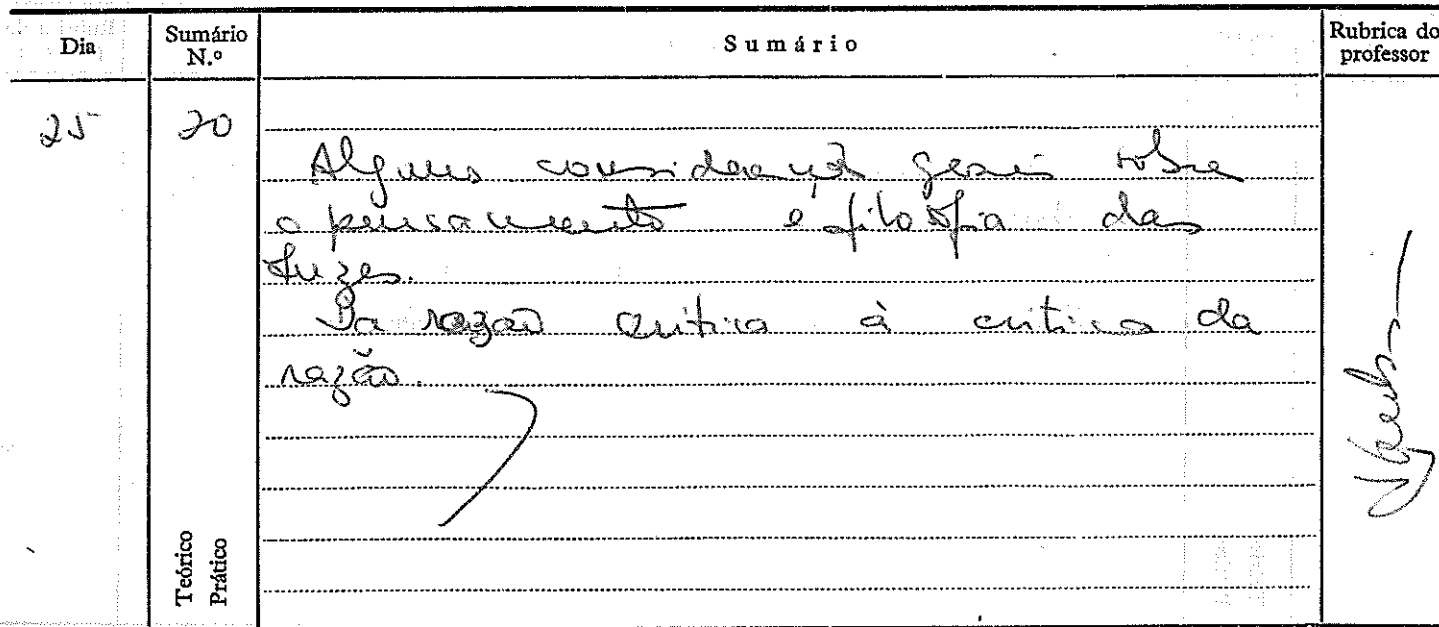 Dia
Sumário N.º
Sumário
Rubrica do professor
25
20
Algumas considerações gerais sobre
o pensamento e filosofia das
Luzes.
Da razão crítica à crítica da
razão.
Teórico
Prático